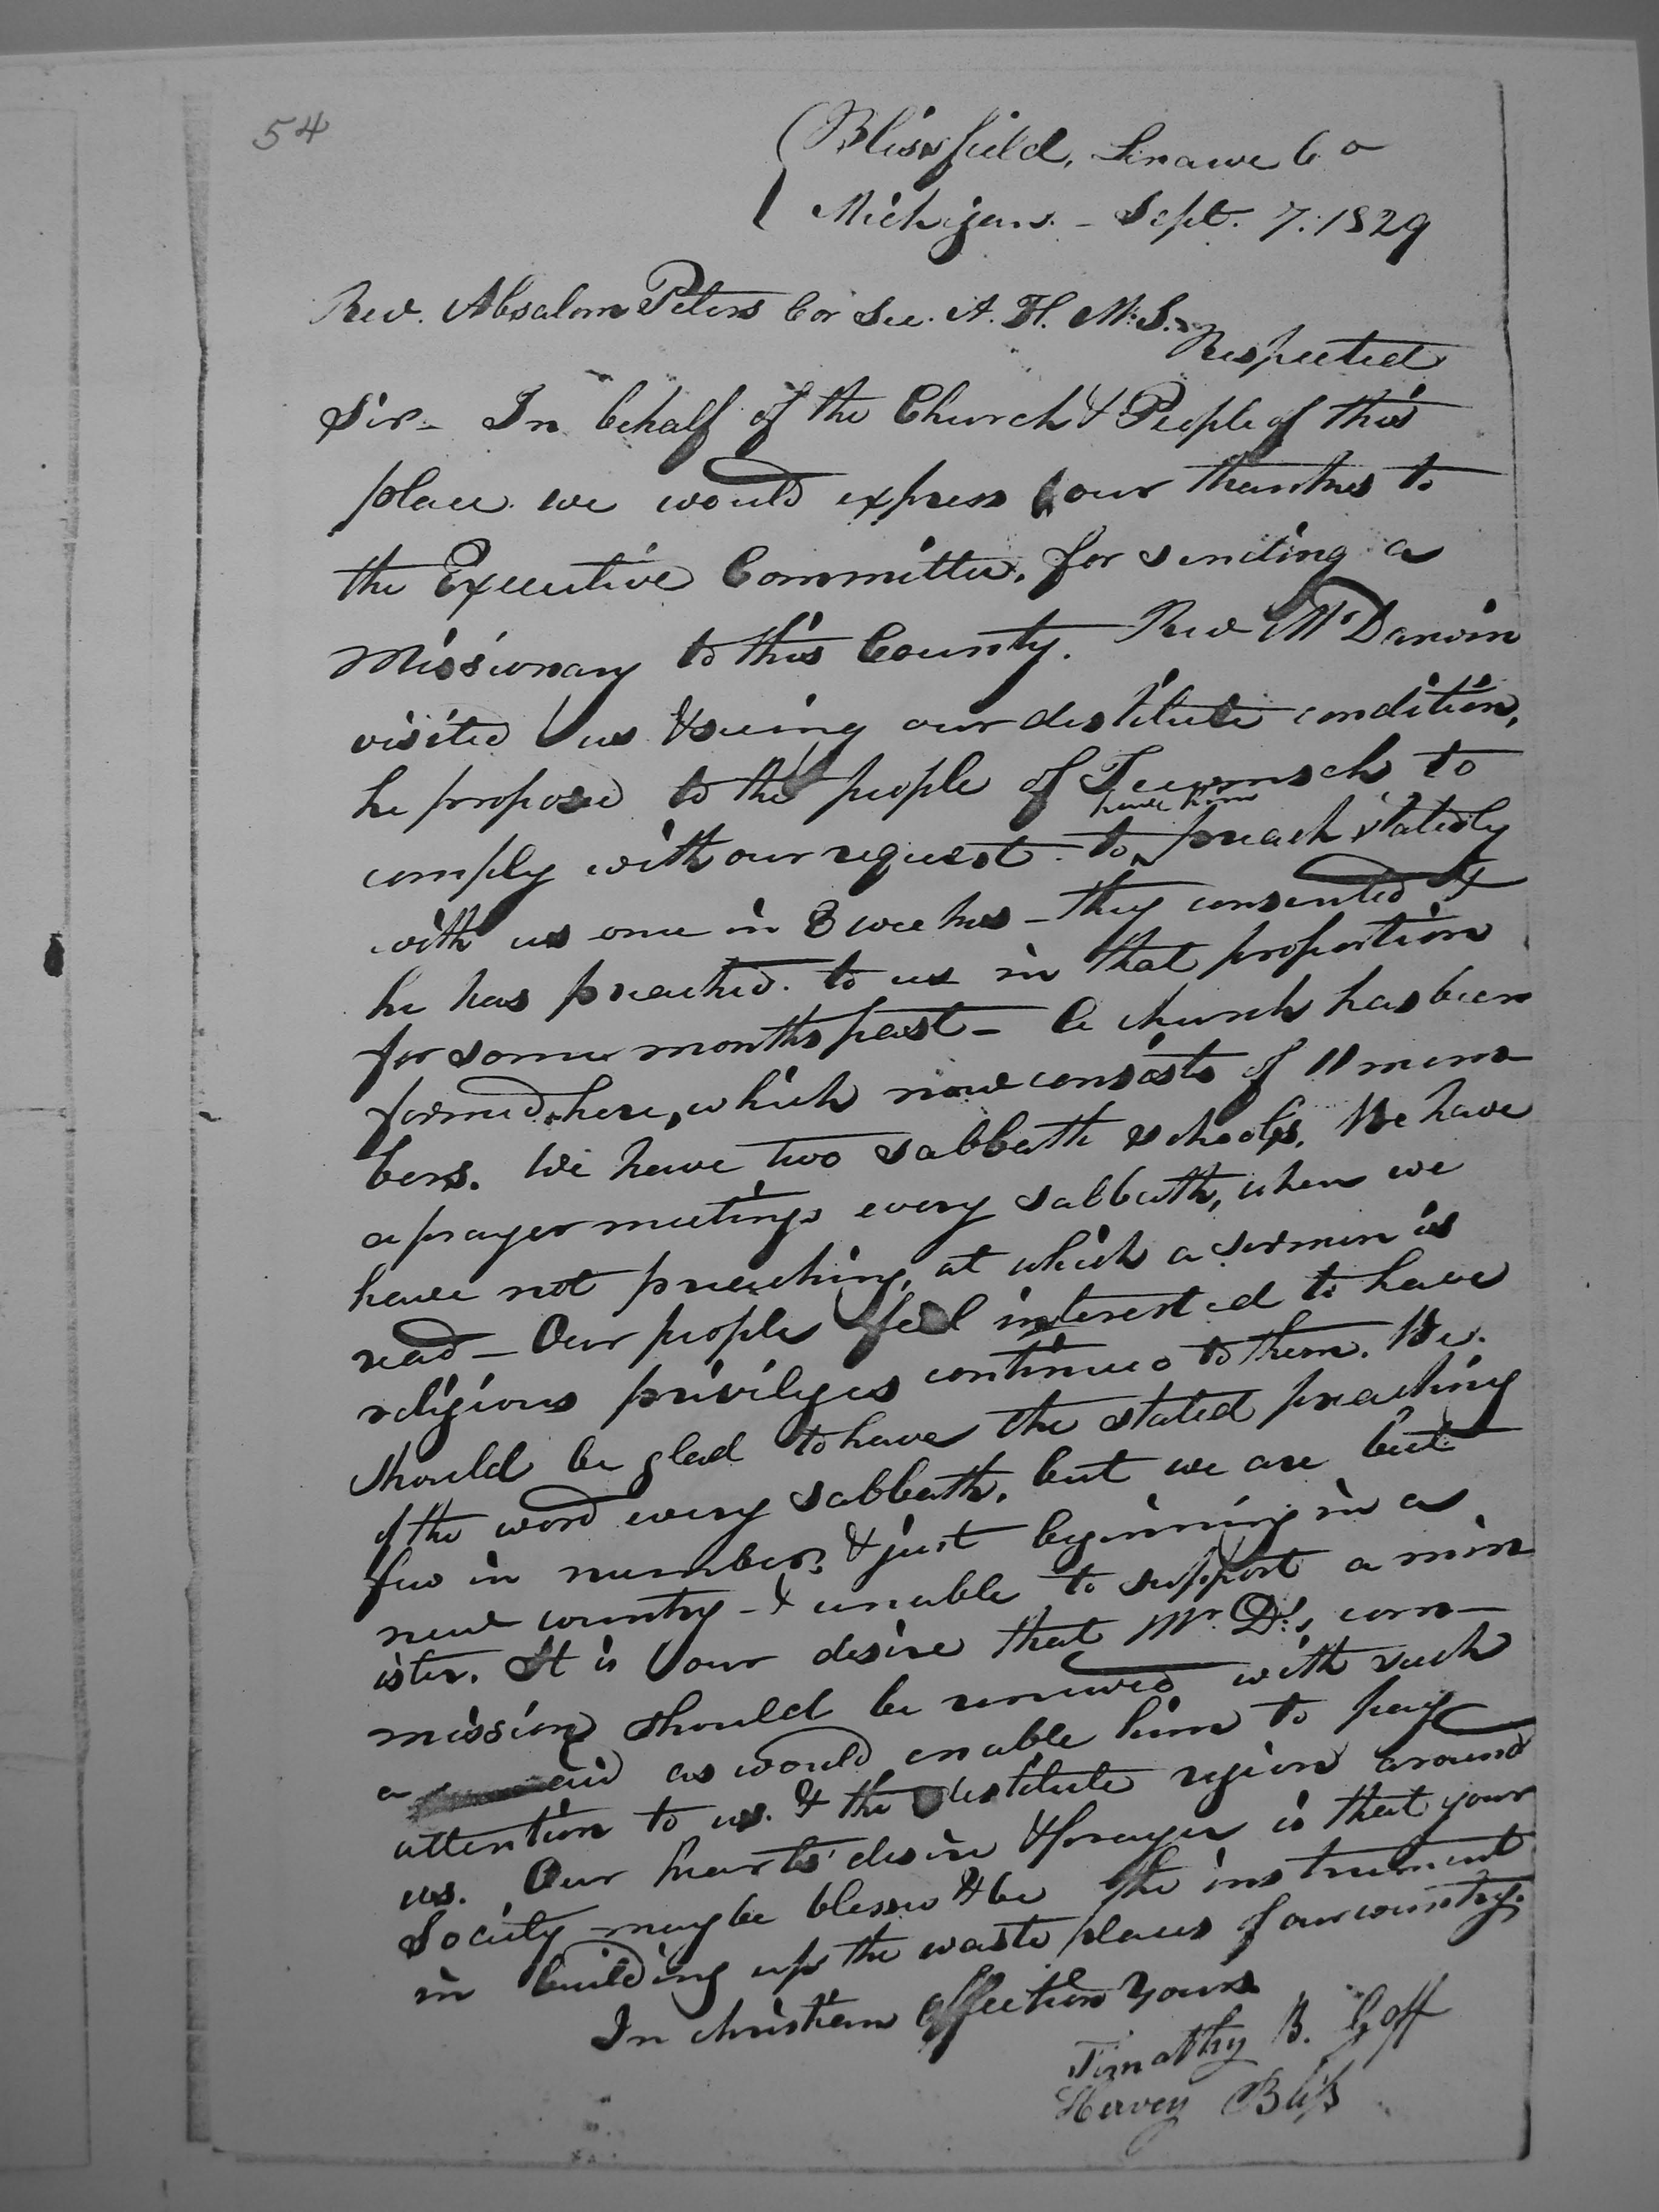 54
Blissfield, Lenawe Co
Michigan. - Sept. 7. 1829
Rev. Absalom Peters Cor Sec. A. H. M. S.
Respected
Sir - In behalf of the Church & People of this
place we would express our thanks to
the Executive Committee, for sending a
Missionary to this County. Rev Mr Darwin
visited us & seeing our destitute condition,
he proposed to the people of Tecumseh to
comply with our request to have him preach statedly
with us once in 3 weeks - they consented &
he has preached to us in that proportion
for some months past - A church has been
formed here, which now consists of 11 mem
bers. We have two sabbath schools. We have
a prayer meeting every sabbath, when we
have not preaching, at which a sermon is
read - Our people feel interested to have
religious privileges continued to them. We
should be glad to have the stated preaching
of the word every sabbath, but we are but
few in number & just beginning in a
new country - & unable to support a min
ister. It is our desire that Mr. D's, com-
mission should be renewed with such
a aid as would enable him to pay
attention to us. & the destitute region around
us. Our hearts desire & prayer is that your
Society may be blessed & be the instrument
in building up the waste places of our country.
In christian affection yours
Timothy B. Goff
Hervey Bliss